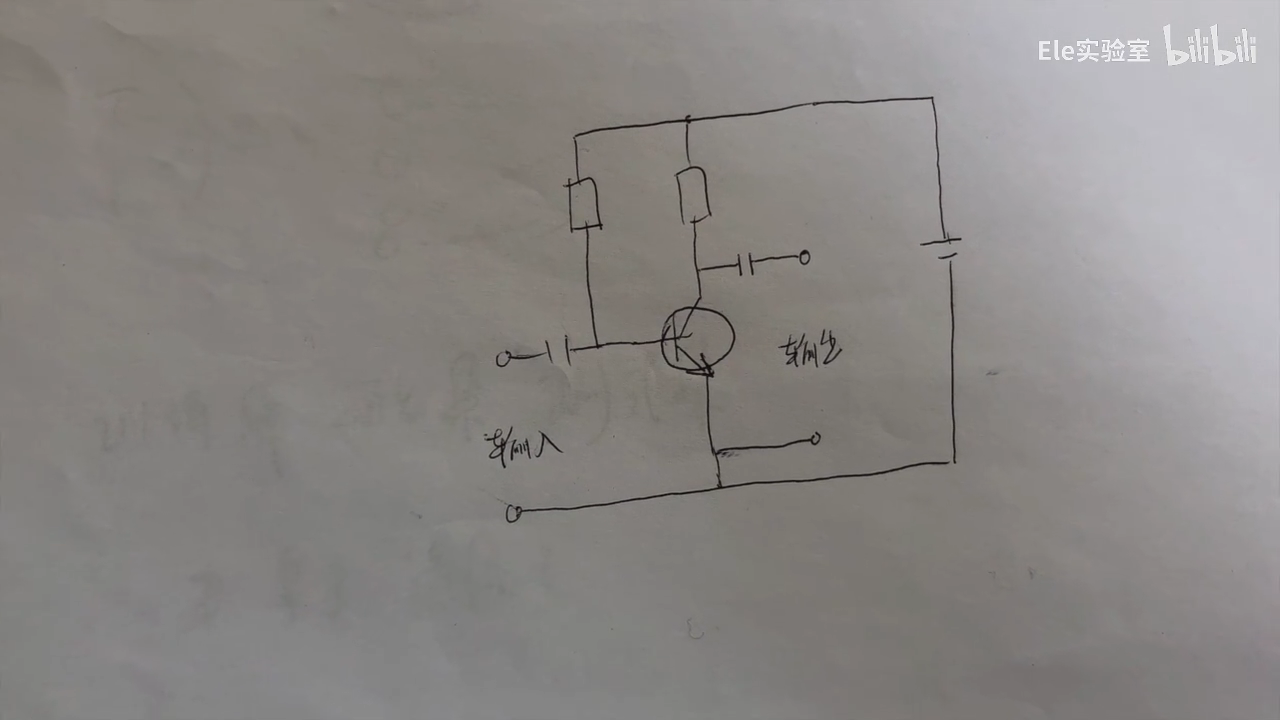 Ele实验室 bilibili
输出
输入